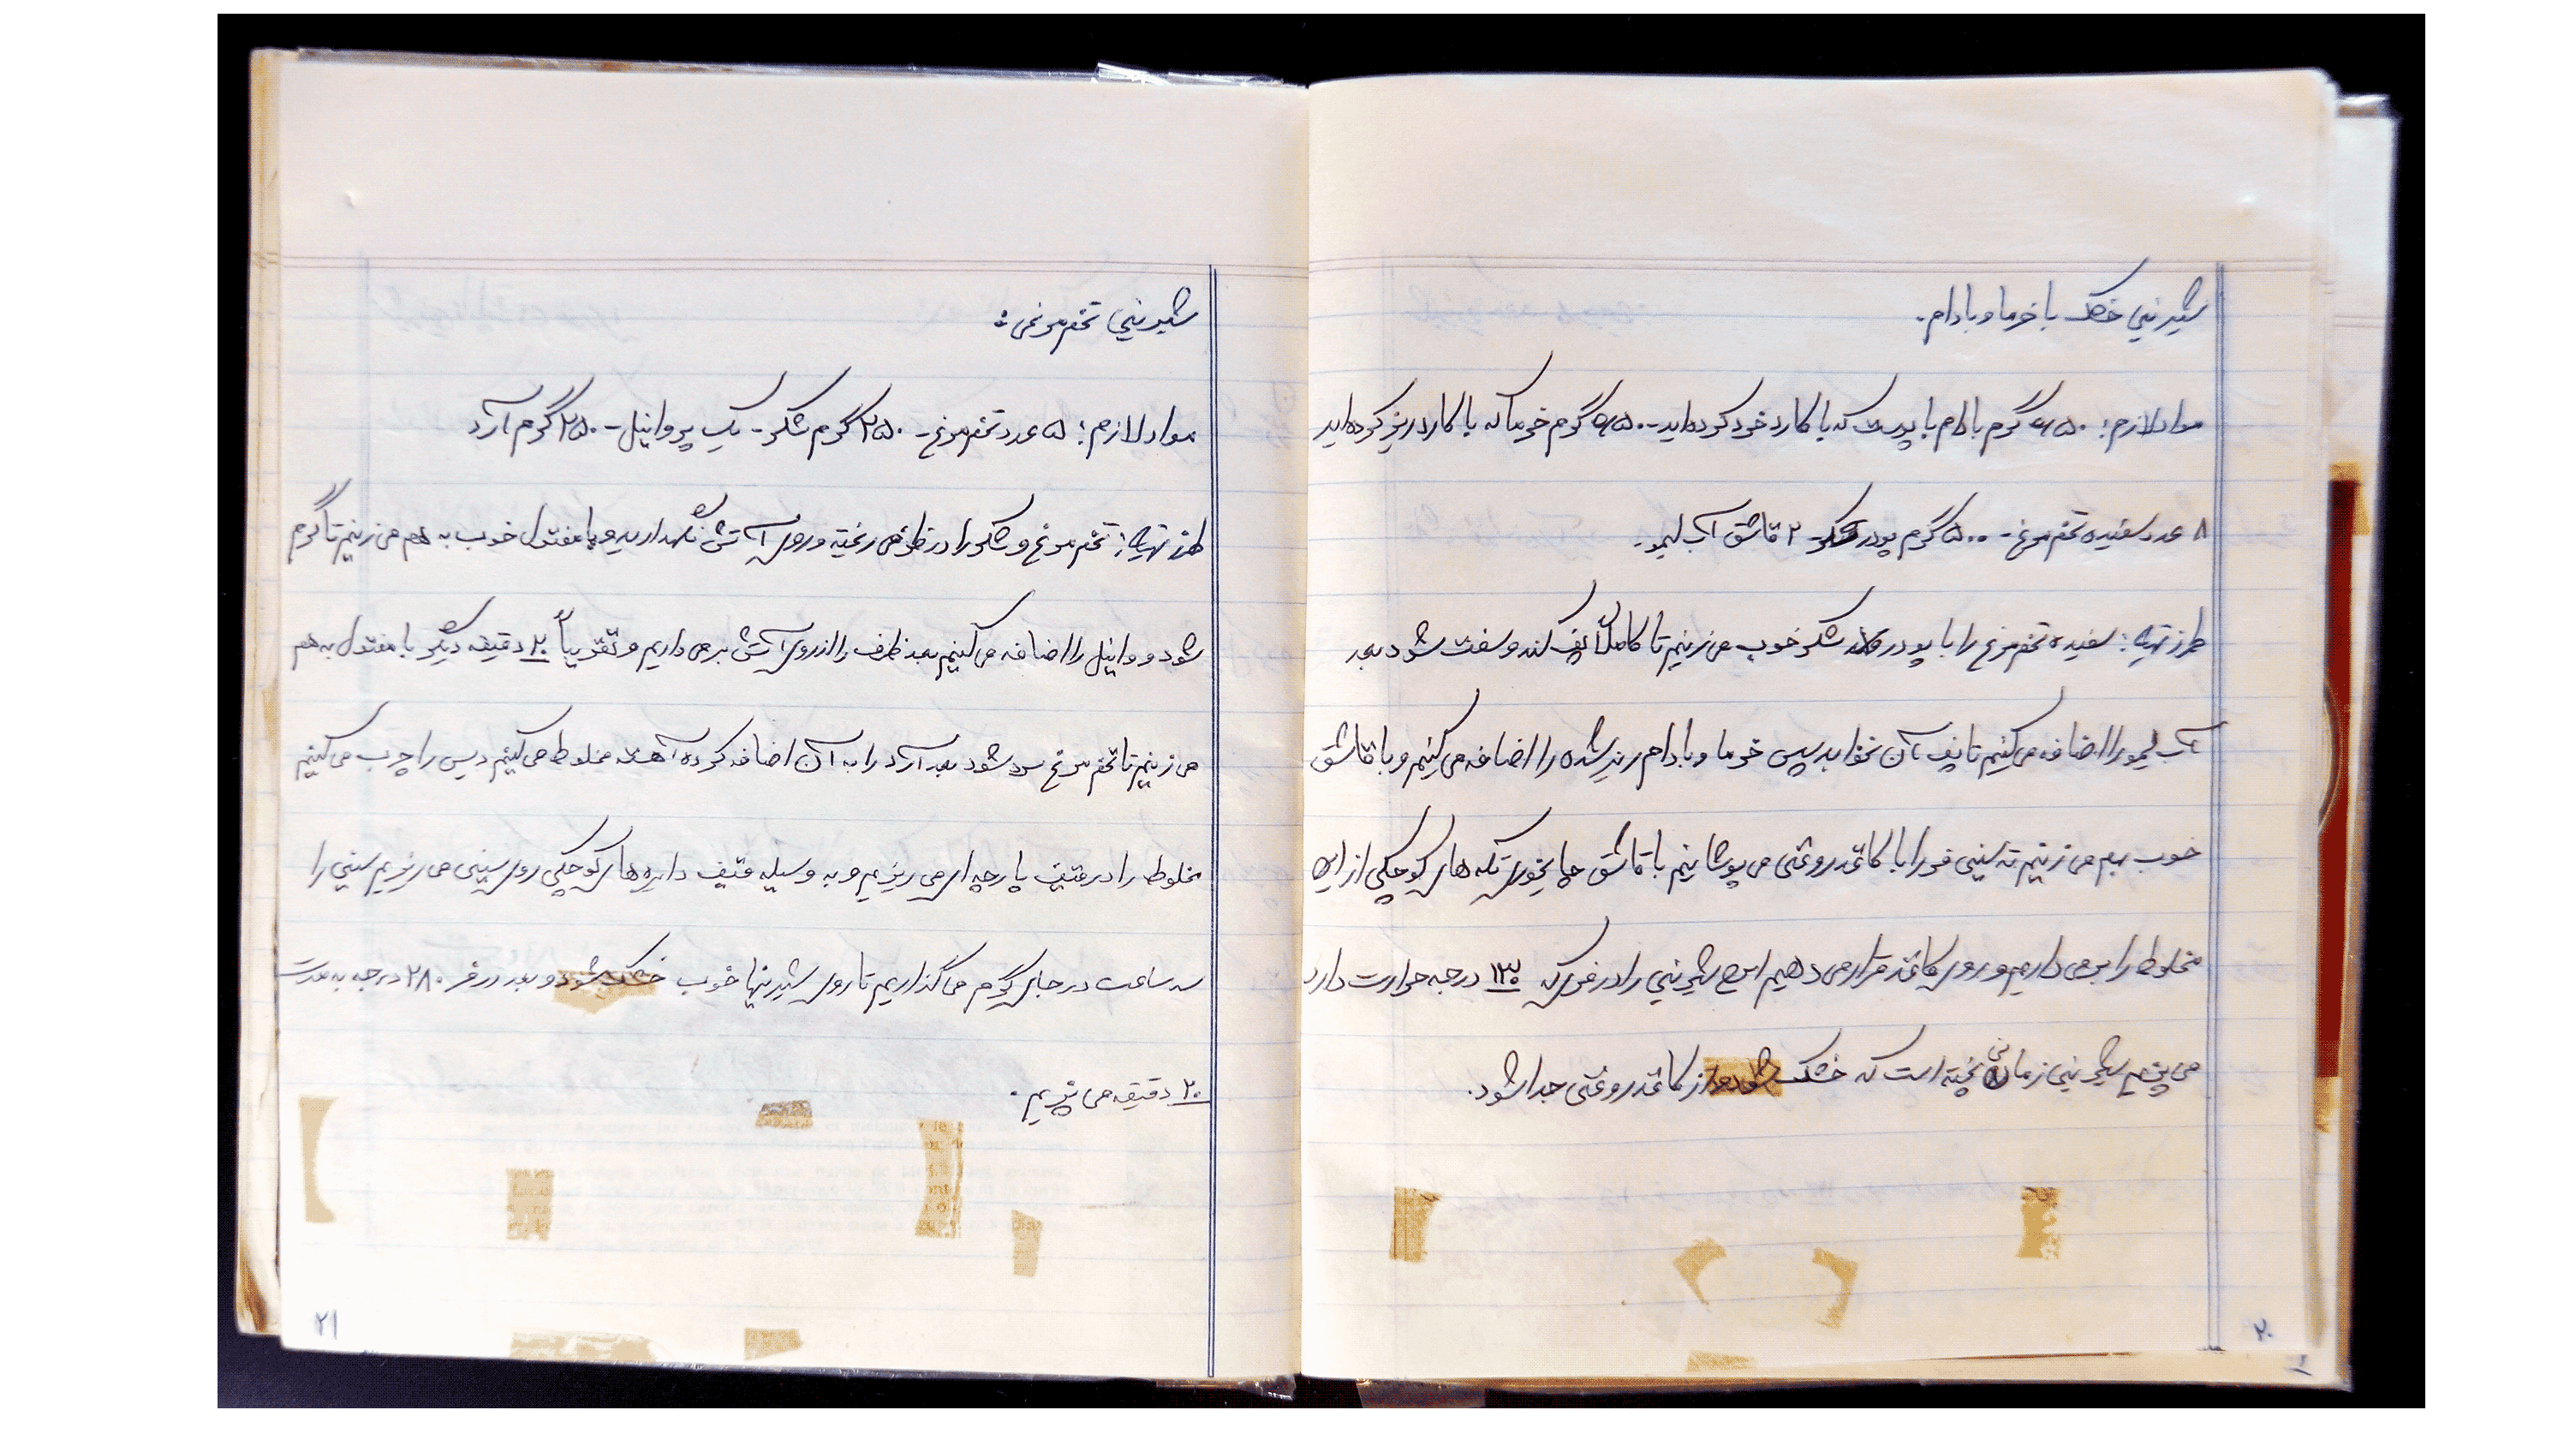 شیرینی خشک با خرما و بادام.
مواد لازم: ۶۵۰ گرم بادام با پوست که با کارد خرد کرده‌اید - ۶۵۰ گرم خرما که با کارد ریز کرده‌اید
۸ عدد سفیده تخم مرغ - ۵۰۰ گرم پودر شکر - ۲ قاشق آب لیمو.
طرز تهیه: سفیده تخم مرغ را با پودر شکر خوب می زنیم تا کاملاً پف کند و سفت شود بعد
آب لیمو را اضافه می کنیم تا پف آن نخوابد سپس خرما و بادام ریز شده را اضافه می کنیم و با قاشق
خوب بهم می زنیم ته سینی فر را با کاغذ روغنی می پوشانیم با قاشق چایخوری تکه های کوچکی از این
مخلوط را بر می داریم و روی کاغذ قرار می دهیم این شیرینی را در فری که ۱۳۰ درجه حرارت دارد
می پزیم شیرینی زمانی پخته است که خشک شود و از کاغذ روغنی جدا شود.
۲۰
شیرینی تخم مرغی:
مواد لازم: ۵ عدد تخم مرغ - ۲۵۰ گرم شکر - یک پر وانیل - ۲۵۰ گرم آرد
طرز تهیه: تخم مرغ و شکر را در ظرفی ریخته و روی آتش نگهدارید و با مفتول خوب به هم می زنیم تا گرم
شود و وانیل را اضافه می کنیم بعد ظرف را از روی آتش بر می داریم و تقریباً ۲۰ دقیقه دیگر با مفتول به هم
می زنیم تا تخم مرغ سرد شود بعد آرد را به آن اضافه کرده آهسته مخلوط می کنیم دیس را چرب می کنیم
مخلوط را در قیف پارچه ای می ریزیم و به وسیله قیف دایره های کوچکی روی سینی می ریزیم سینی را
سه ساعت در جای گرم می گذاریم تا روی شیرینیها خوب خشک شود و بعد در فر ۲۸۰ درجه به مدت
۲۰ دقیقه می پزیم.
۲۱